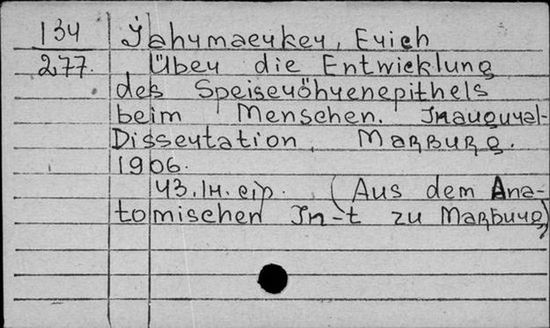 134 Jahrmaerker, Erich
277. Über die Entwicklung
des Speiseröhrenepithels
beim Menschen. Inaugural-
Dissertation, Marburg.
1906.
43. (Aus dem Ana-
tomischen In-t zu Marburg)